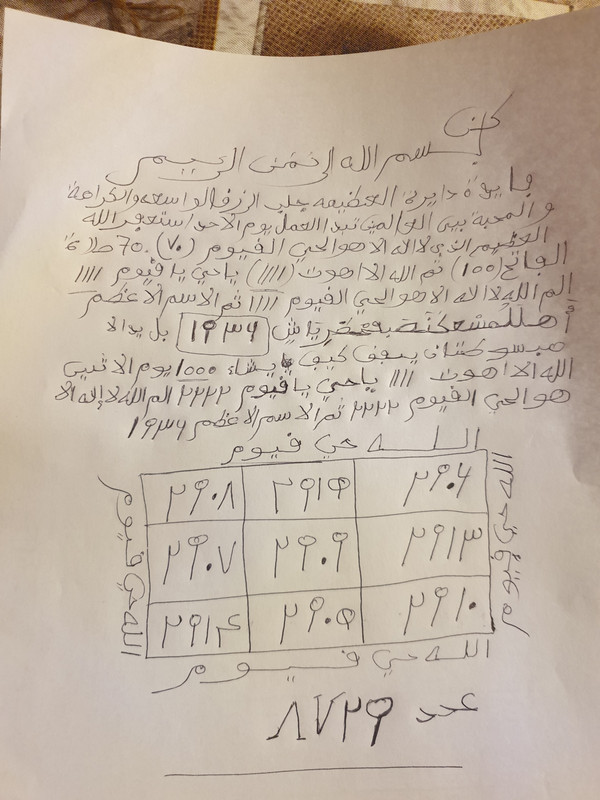 بسم الله الرحمن الرحيم
يدة دايرة العظيمه جلب الرزق الواسعه والكرامة
و المحبة بين العالمين تبدا العمل يوم الاحد استغفر الله
العظيم الذي لا اله الا هو الحي القيوم (٧٠). 70
الفاتح (١٠٠) ثم الله الا هوت (١١١١) يا حي يا قيوم ١١١١
الم الله لا اله الا هو الحي القيوم ١١١١ ثم الاسم الاعظم
١٩٣٦ بل يداه
مبسوطتان ينفق كيف يشاء 1000 يوم الاثنين
الله الا هوت ١١١١ يا حي يا قيوم ٢٢٢٢ الم الله لا إله الا
هو الحي القيوم ٢٢٢٢ ثم الاسم الاعظم ١٩٣٦
الله حي قيوم
الله حي قيوم
٢٩٠٦ ٢٩١٥ ٢٩٠٨
٢٩١٣ ٢٩٠٩ ٢٩٠٧
٢٩١٠ ٢٩٠٥ ٢٩١٤
الله حي قيوم
عدد ٨٧٢٩